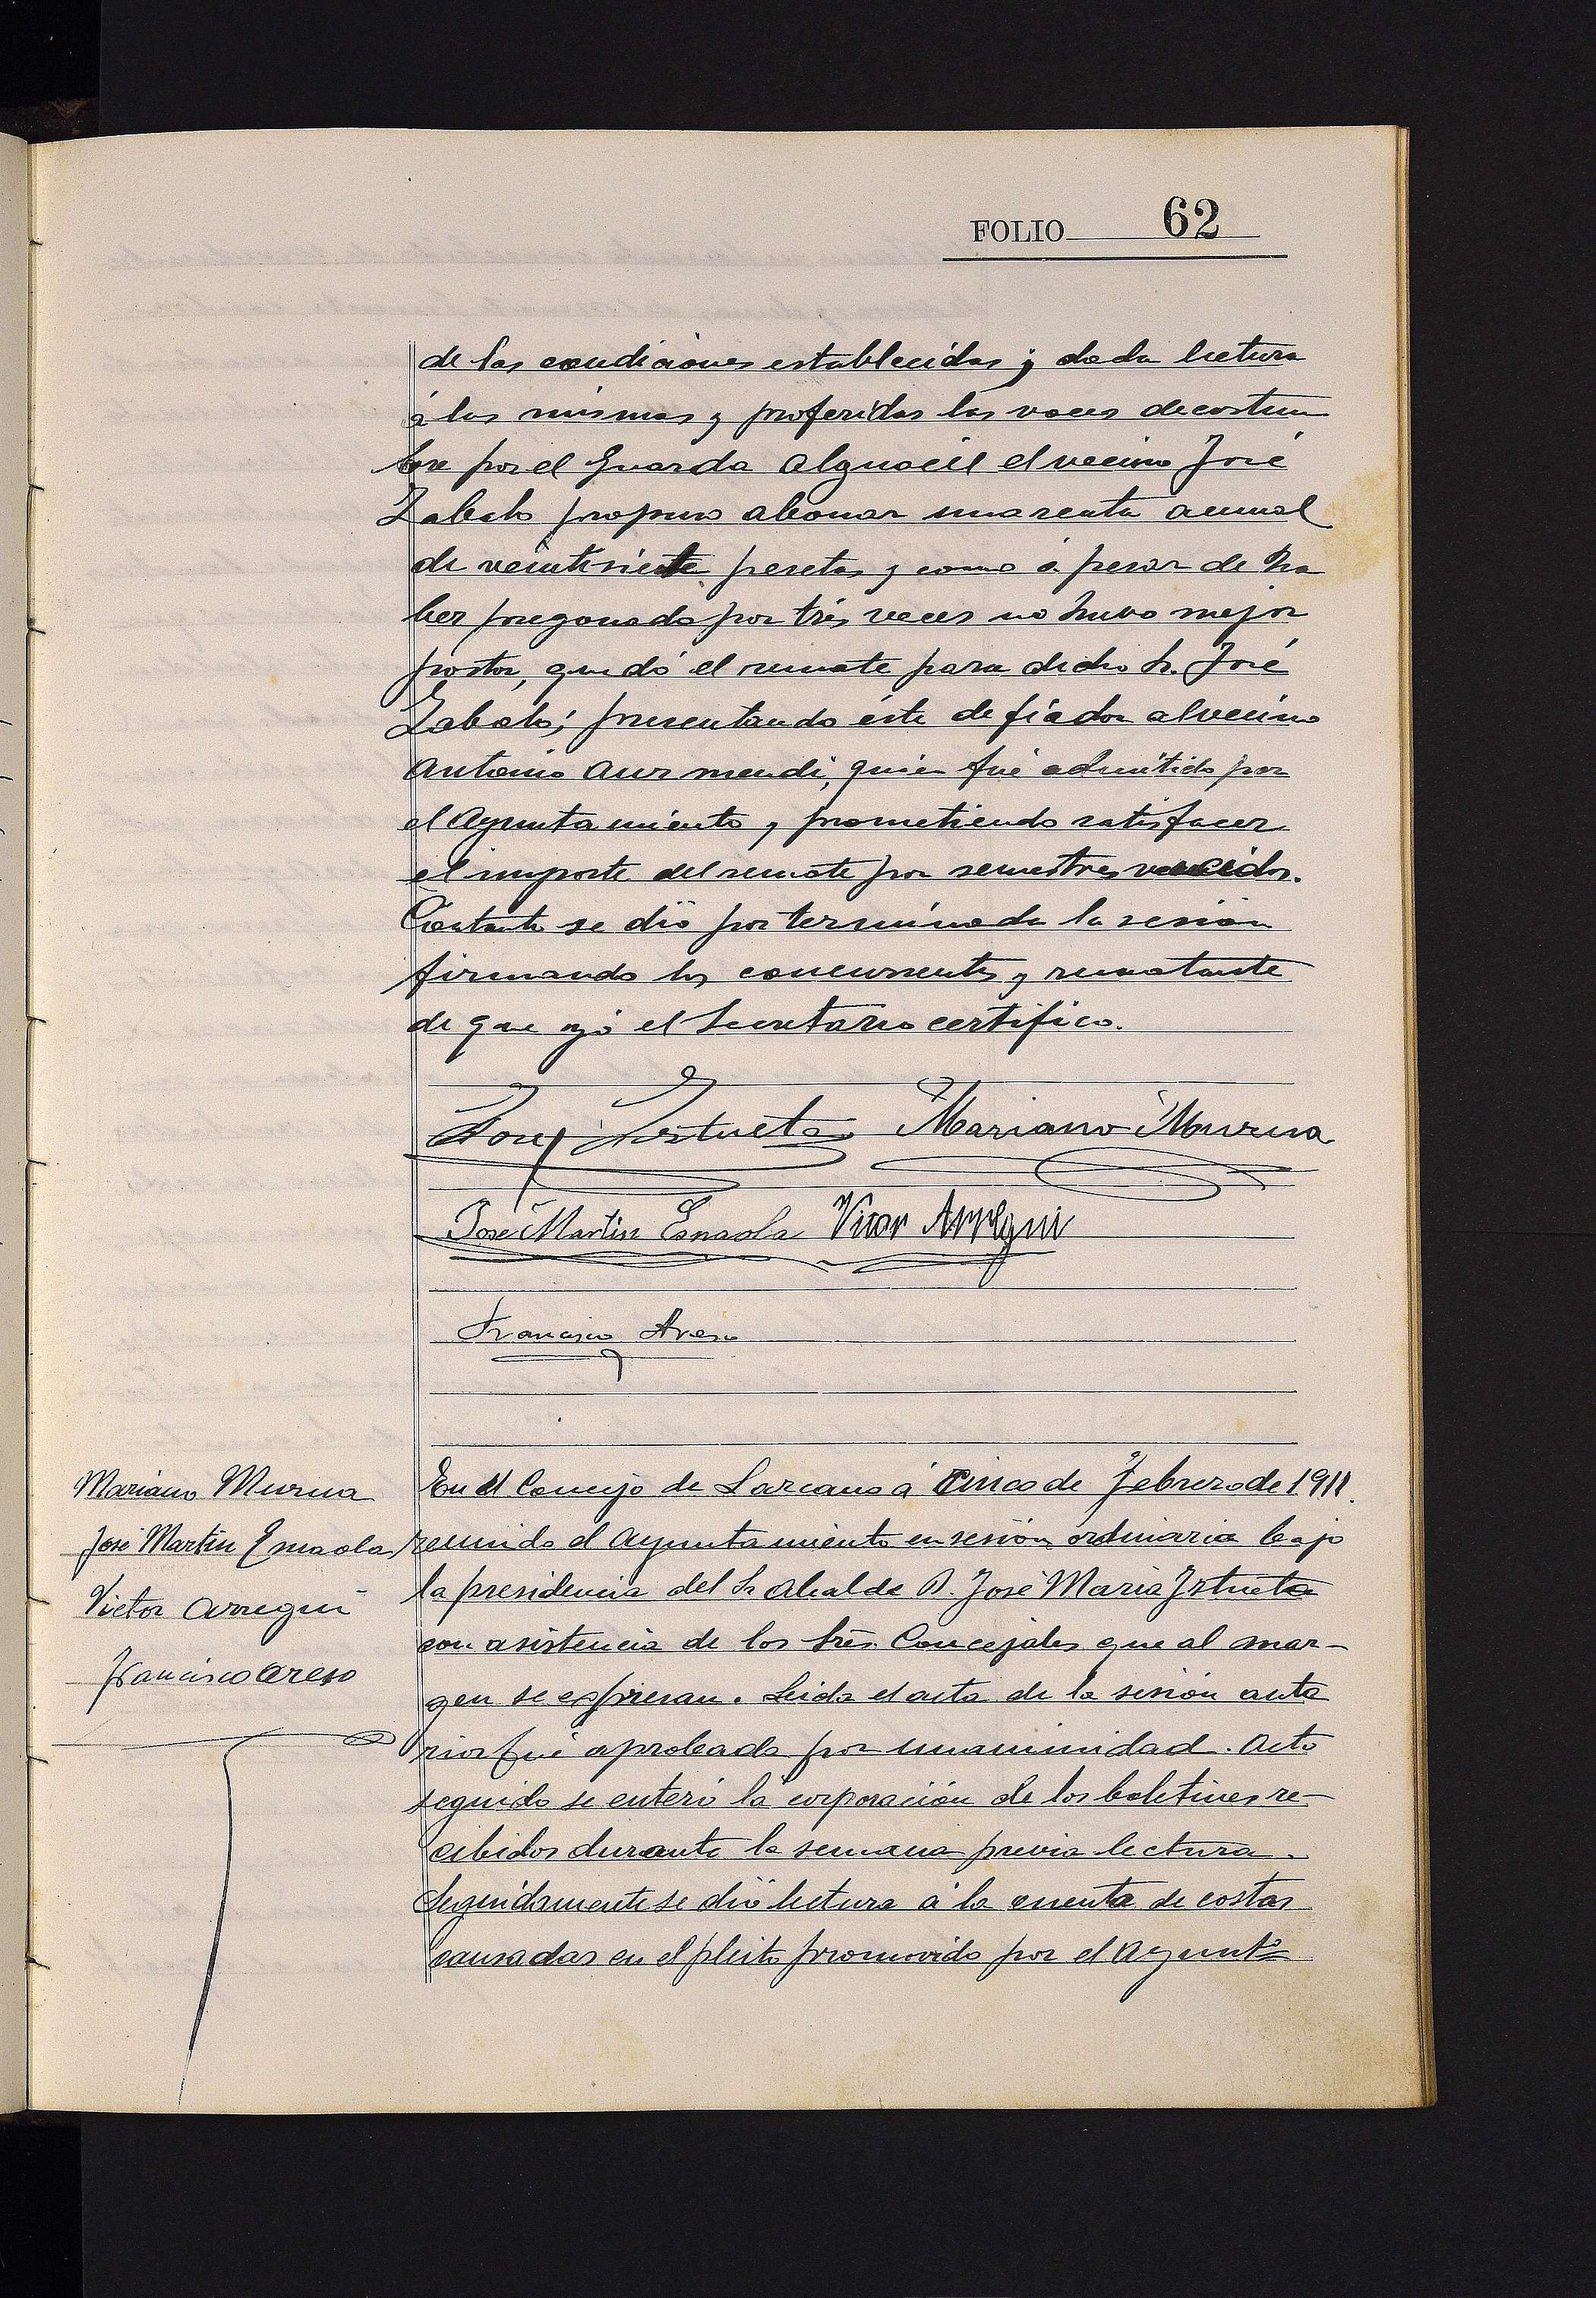 FOLIO 62
de las condiciones establecidas y dada lectura
á las mismas y proferidas las voces de costum
bre por el Guarda Alguacil el vecino José
Zabalo propuso abonar una renta anual
de veintisiete pesetas y como á pesar de ha
ber pregonado por trés veces no hubo mejor
postor, quedó el remate para dicho Sr. José
Zabalo; presentando éste de fiador al vecino
Antonio Aurmendi, quien fué admitido por
el Ayuntamiento y prometiendo satisfacer
el importe del remate por semestres vencidos.
Contanto se dió por terminada la sesión
firmando los concurrentes y rematante
de que yó el Secretario certifico.
José Iztueta Mariano Murua
José Martin Esnaola Vitor Arregui
Francisco Areso
Mariano Murua
José Martin Esnaola
Victor Arregui
Francisco Areso
En el Concejo de Lazcano á Cinco de Febrero de 1911.
reunido el Ayuntamiento en sesión ordinaria bajo
la presidencia del Sr Alcalde D. José Maria Iztueta
con asistencia de los Srés. Concejales que al mar-
gen se expresan. Leida el acta de la sesión ante
rior fué aprobada por unanimidad. Acto
seguido se enteró la corporación de los boletines re-
cibidos durante la semana previa lectura.
Seguidamente se dió lectura á la cuenta de costas
causadas en el pleito promovido por el Ayuntº